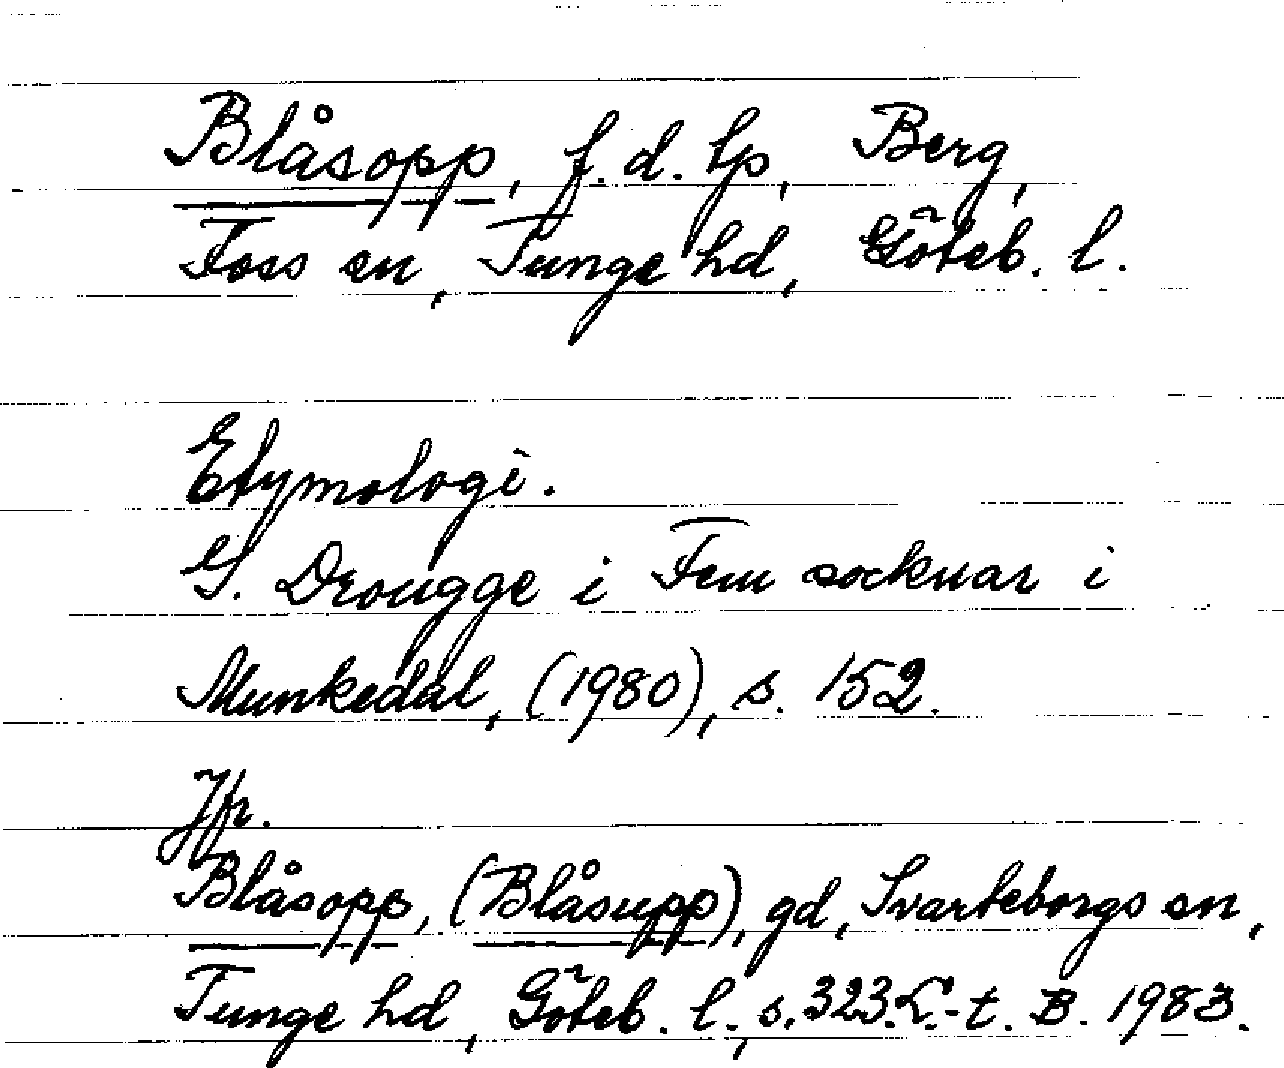 Blåsopp, f. d. lp, Berg,
Foss sn, Tunge hd, Göteb. l.
Etymologi.
G. Drougge i Fem socknar i
Munkedal, (1980), s. 152.
Jfr.
Blåsopp, (Blåsupp), gd, Svarteborgs sn,
Tunge hd, Göteb. l., s. 323. t. B. 1983.